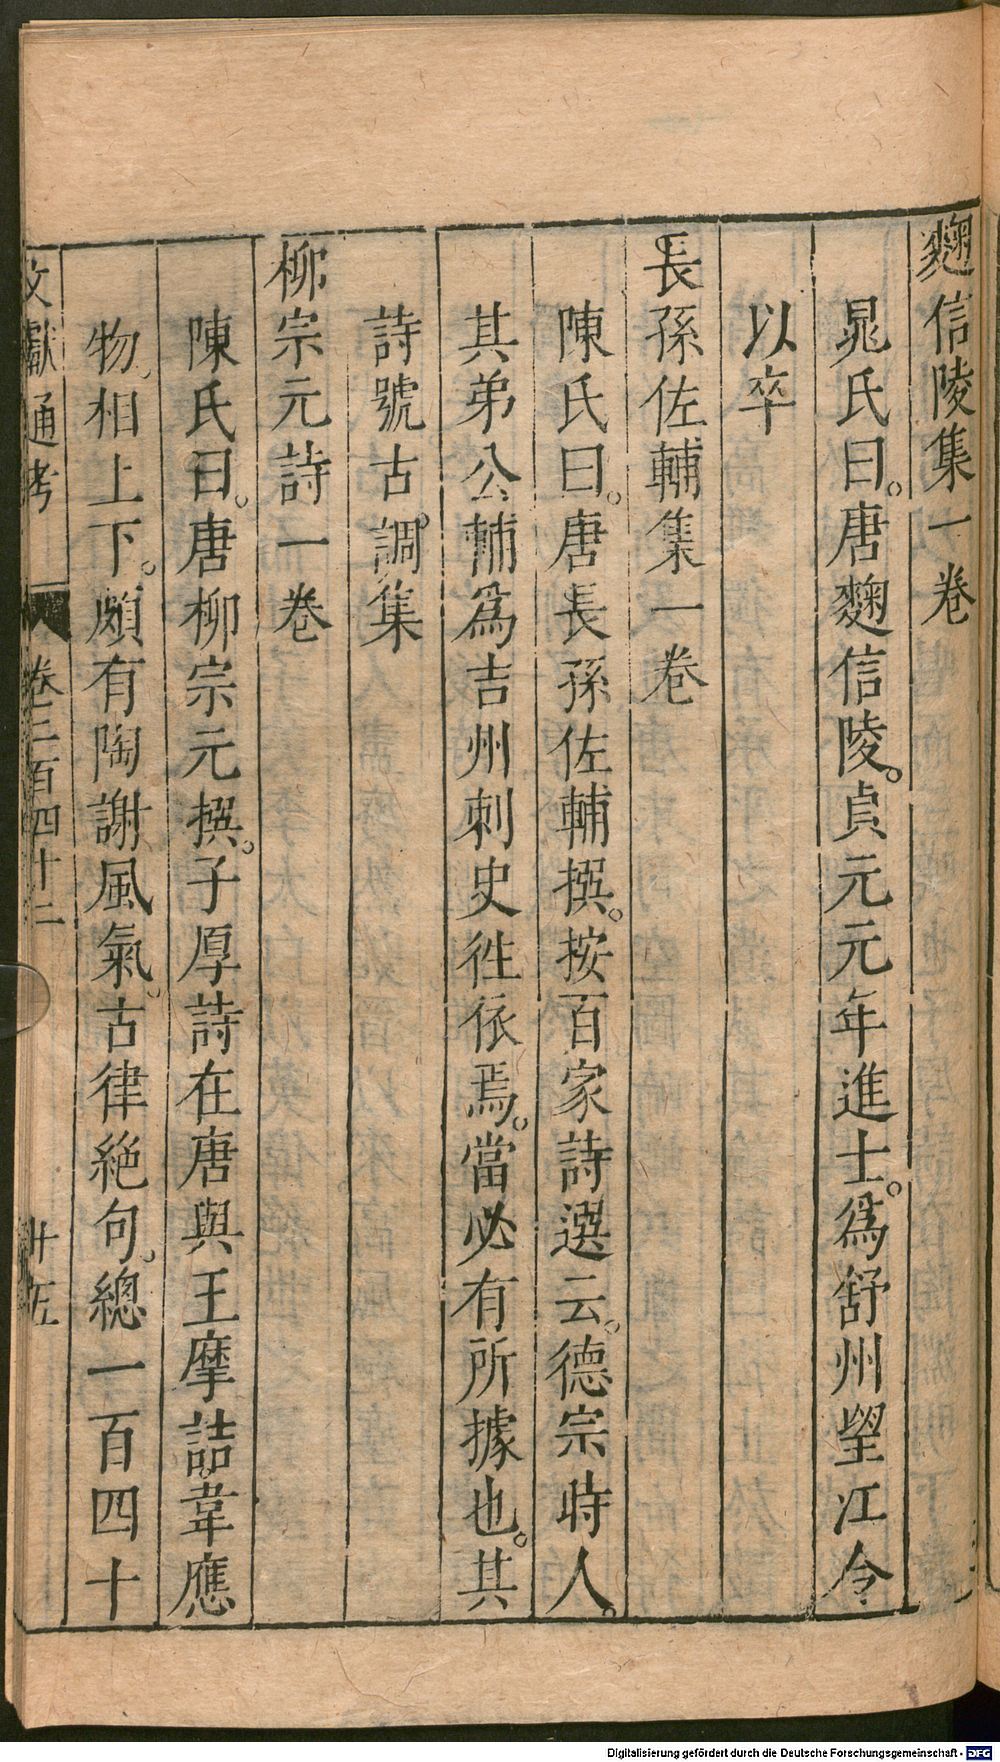 麴信陵集一卷
晁氏曰。唐麴信陵。貞元元年進士。爲舒州望江令
以卒
長孫佐輔集一卷
陳氏曰。唐長孫佐輔撰。按百家詩選云。德宗時人。
其弟公輔爲吉州刺史徃依焉。當必有所據也。其
詩號古調集
柳宗元詩一卷
陳氏曰。唐柳宗元撰。子厚詩在唐與王摩詰韋應
物相上下。頗有陶謝風氣。古律絕句。總一百四十
文獻通考 卷二百四十二 廿五
Digitalisierung gefördert durch die Deutsche Forschungsgemeinschaft - DFG